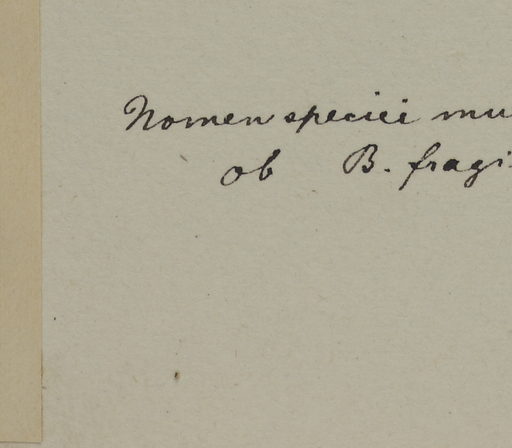 Nomen speciei mu
ob B. fragi